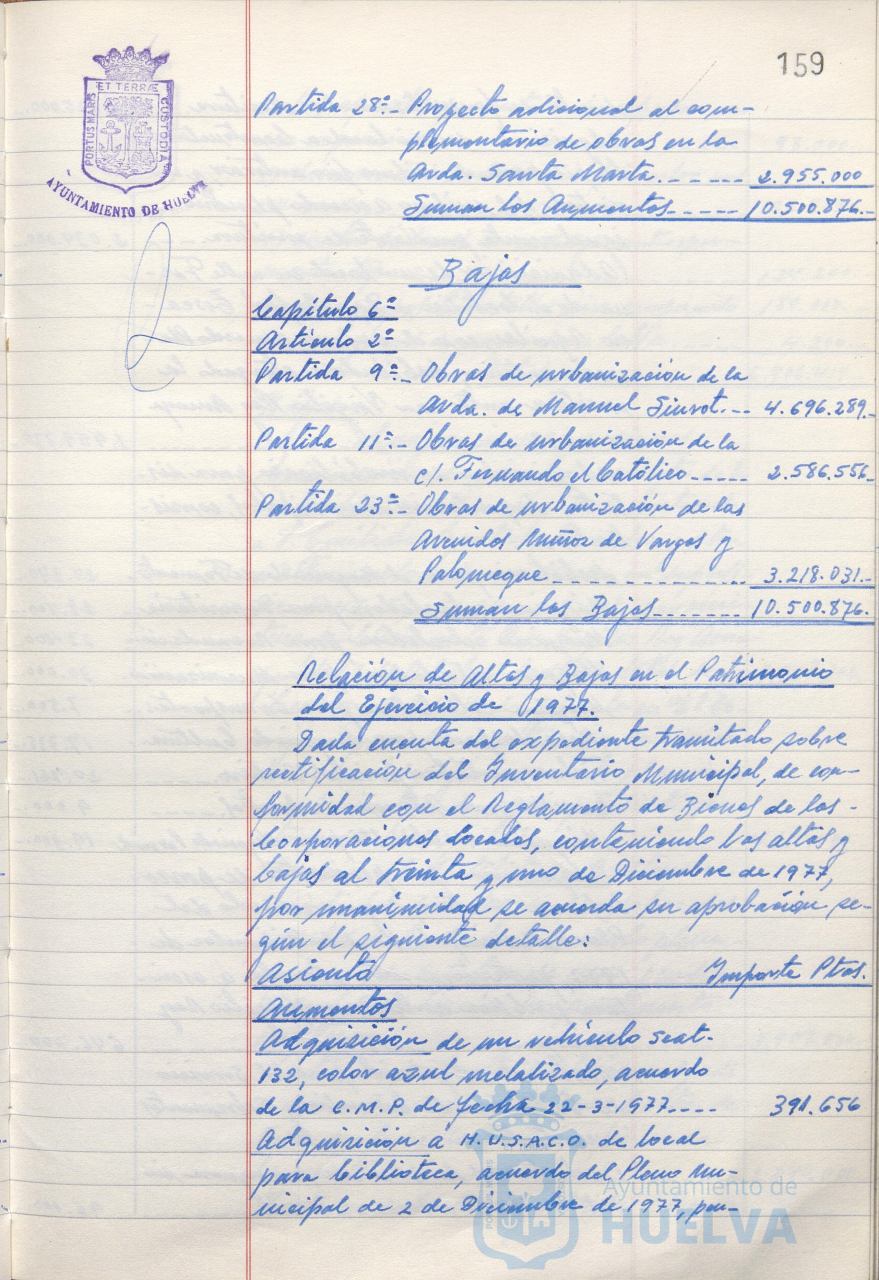 159
ET TERRÆ
PORTUS MARIS
CUSTODIA
AYUNTAMIENTO DE HUELVA
Partida 28ª.- Proyecto adicional al com-
plementario de obras en la
Avda. Santa Marta. ------ 2.955.000
Suman los Aumentos ----- 10.500.876.-
Bajas
Capítulo 6º
Artículo 2º
Partida 9ª.- Obras de urbanización de la
Avda. de Manuel Siurot.-- 4.696.289.-
Partida 11ª.- Obras de urbanización de la
c/. Fernando el Católico ----- 2.586.556.-
Partida 23ª.- Obras de urbanización de las
Avenidas Muñoz de Vargas y
Palomeque --------------- 3.218.031.-
Suman las Bajas ------- 10.500.876.-
Relación de Altas y Bajas en el Patrimonio
del Ejercicio de 1977.
Dada cuenta del expediente tramitado sobre
rectificación del Inventario Municipal, de con-
formidad con el Reglamento de Bienes de las -
Corporaciones Locales, conteniendo las altas y
bajas al treinta y uno de Diciembre de 1977,
por unanimidad se acuerda su aprobación se-
gún el siguiente detalle:
Asiento Importe Ptas.
Aumentos
Adquisición de un vehículo Seat-
132, color azul metalizado, acuerdo
de la C.M.P. de fecha 22-3-1977 ---- 391.656
Adquisición a H.U.S.A.C.O. de local
para biblioteca, acuerdo del Pleno Mu-
nicipal de 2 de Diciembre de 1977, par-
Ayuntamiento de
HUELVA